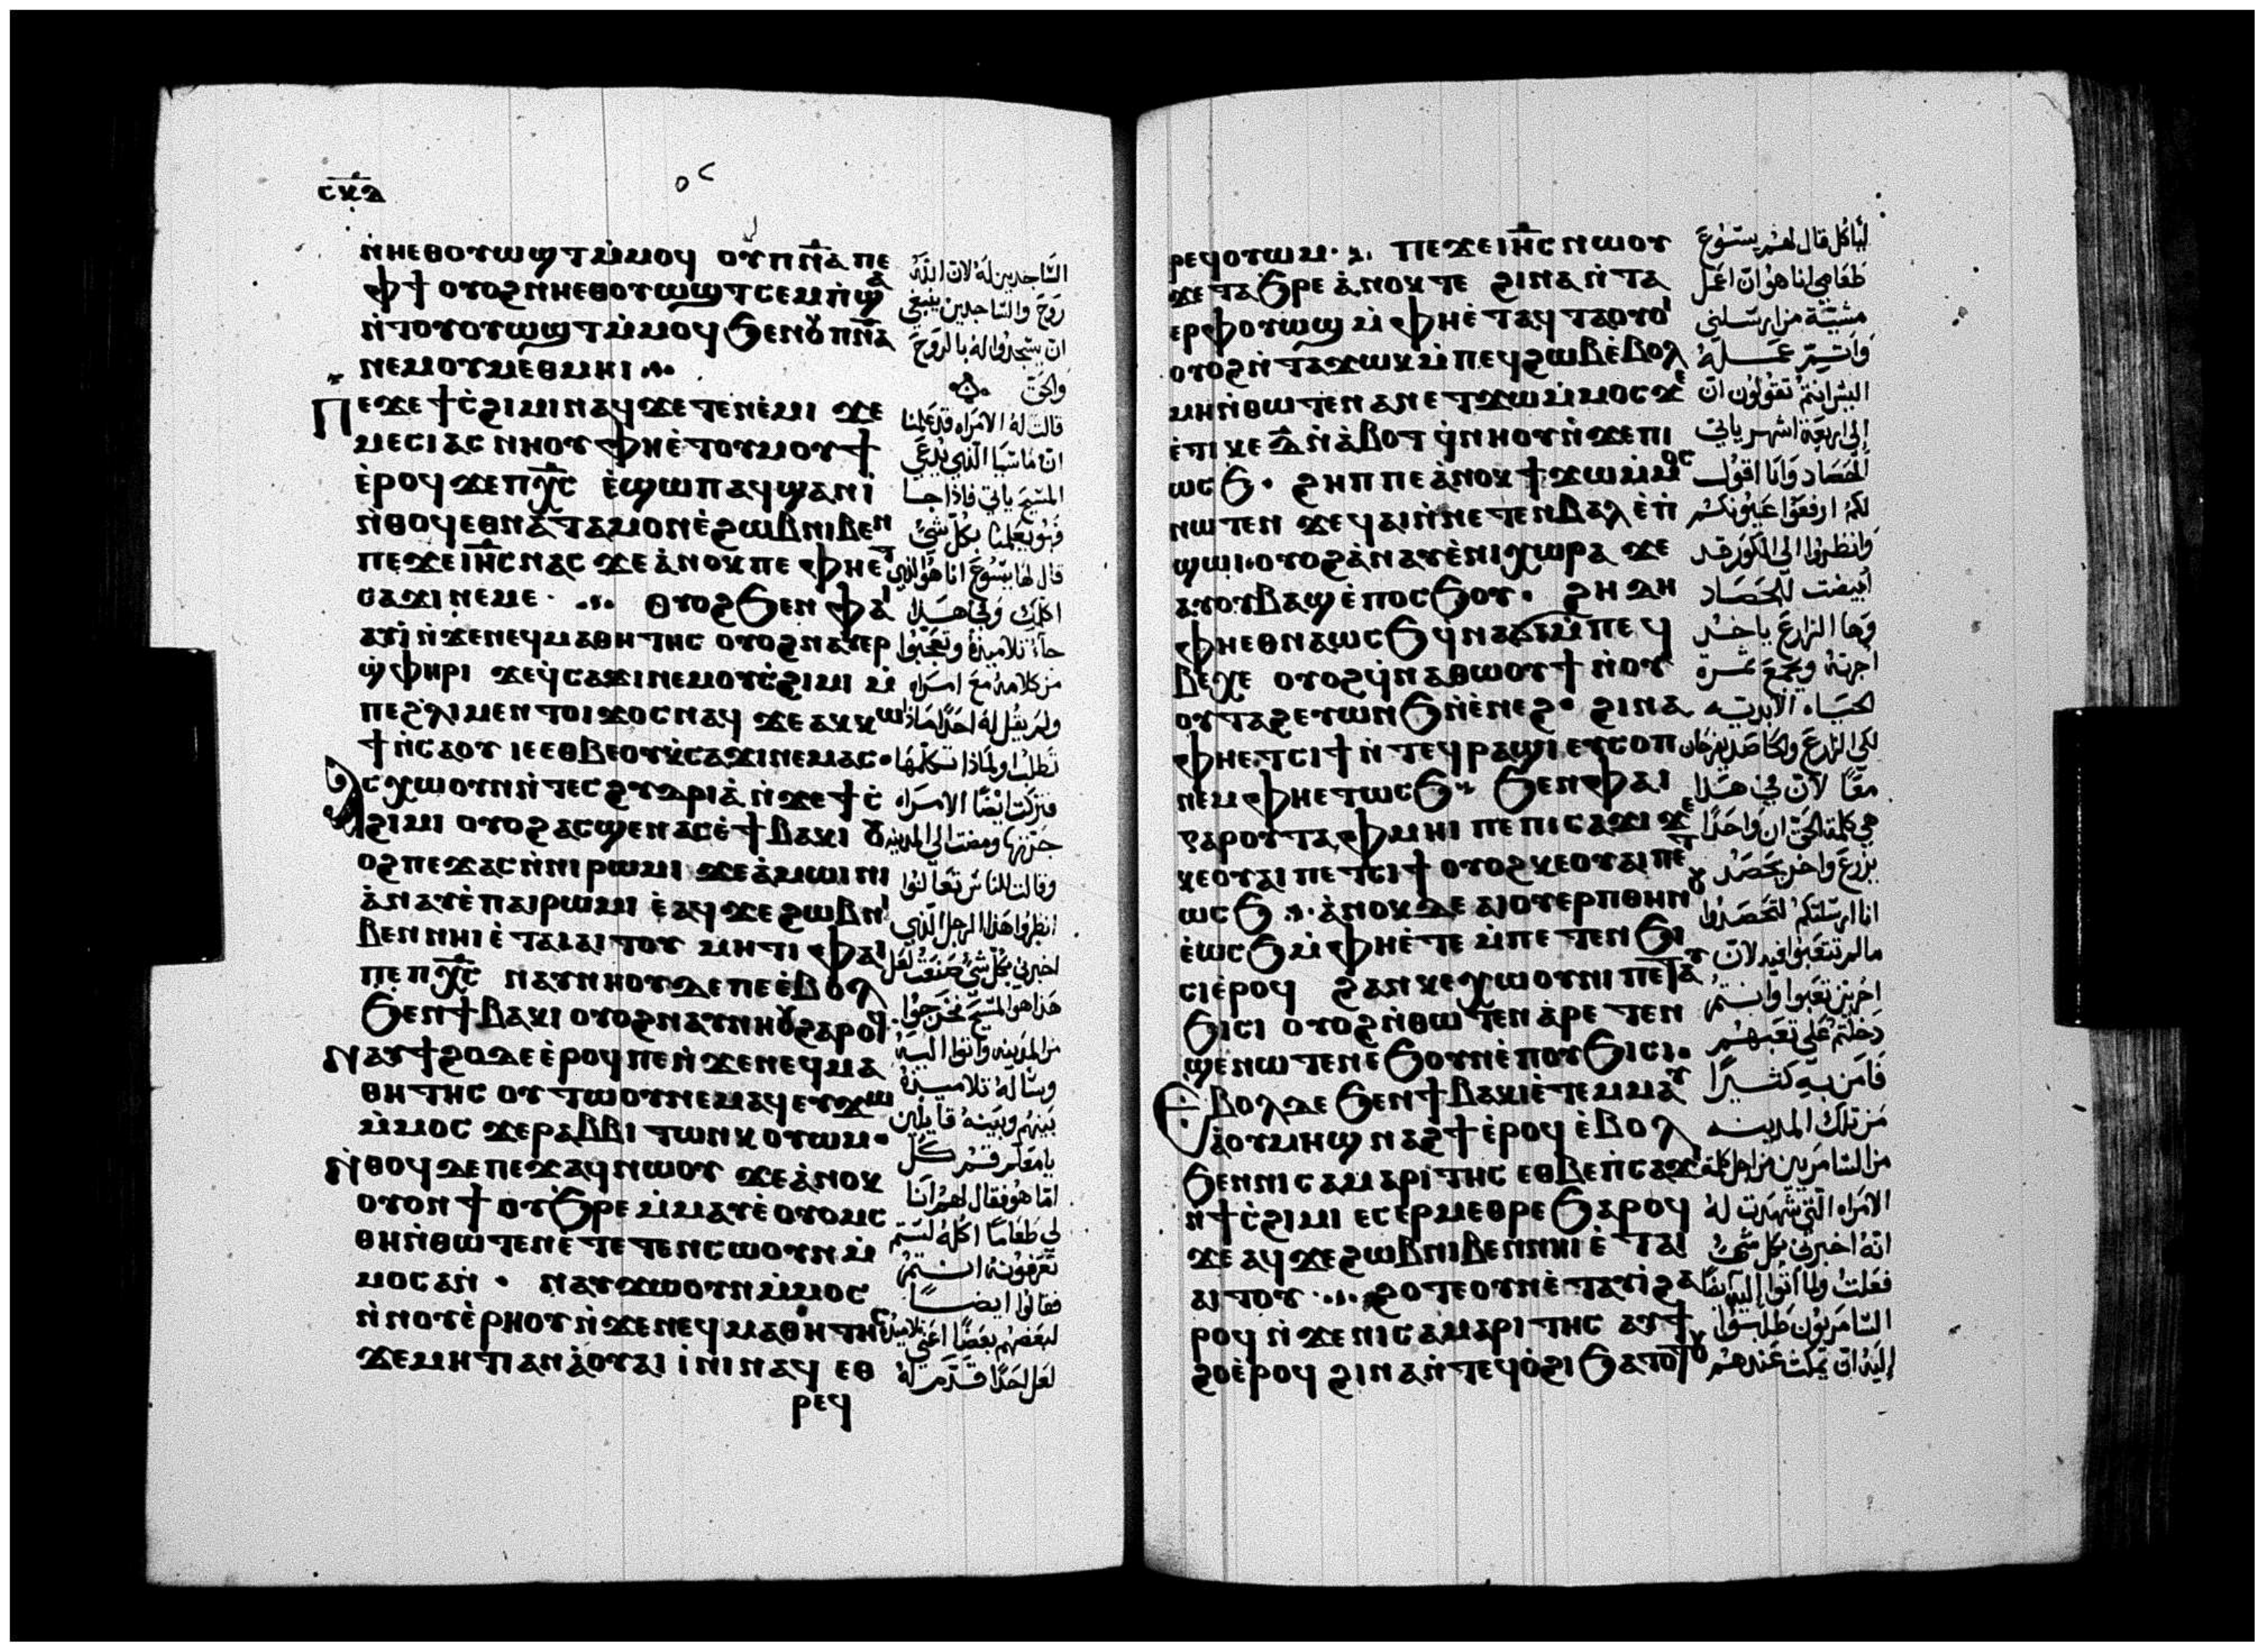 ⲥⲕⲇ
ⲛ̀ⲛⲉⲑⲟⲩⲱϣⲧ ⲙ̀ⲙⲟϥ ⲟⲩⲡⲛ̅ⲁ̅ ⲡⲉ
ⲫϯ ⲟⲩⲟϩ ⲛⲏⲉⲑⲟⲩⲱϣⲧ ⲥⲉⲙⲡ̀ϣⲁ
ⲛ̀ⲧⲟⲩⲟⲩⲱϣⲧ ⲙ̀ⲙⲟϥ ϧⲉⲛⲟⲩⲡⲛ̅ⲁ̅
ⲛⲉⲙⲟⲩⲙⲉⲑⲙⲏⲓ
ⲡⲉϫⲉ ϯⲥ̀ϩⲓⲙⲓ ⲛⲁϥ ϫⲉ ⲧⲉⲛⲉ̀ⲙⲓ ϫⲉ
ⲙⲉⲥⲓⲁⲥ ⲛⲏⲟⲩ ⲫⲏⲉ̀ⲧⲟⲩⲙⲟⲩϯ
ⲉ̀ⲣⲟϥ ϫⲉⲡⲭ̅ⲥ̅ ⲉ̀ϣⲱⲡ ⲁϥϣⲁⲛⲓ̀
ⲛ̀ⲑⲟϥ ⲉⲑⲛⲁⲧⲁⲙⲟⲛ ⲉ̀ϩⲱⲃ ⲛⲓⲃⲉⲛ
ⲡⲉϫⲉ ⲓⲏ̅ⲥ̅ ⲛⲁⲥ ϫⲉ ⲁ̀ⲛⲟⲕ ⲡⲉ ⲫⲏⲉⲧ
ⲥⲁϫⲓ ⲛⲉⲙⲉ ⲟⲩⲟϩ ϧⲉⲛ ⲫⲁⲓ
ⲁⲩⲓ̀ ⲛ̀ϫⲉ ⲛⲉϥⲙⲁⲑⲏⲧⲏⲥ ⲟⲩⲟϩ ⲛⲁⲩⲉⲣ
ϣ̀ⲫⲏⲣⲓ ϫⲉ ϥ̀ⲥⲁϫⲓ ⲛⲉⲙ ⲟⲩⲥ̀ϩⲓⲙⲓ ⲙ̀
ⲡⲉϩ̀ⲗⲓ ⲙⲉⲛⲧⲟⲓ ϫⲟⲥ ⲛⲁϥ ϫⲉ ⲁⲕⲕⲱ
ϯ ⲛ̀ⲥⲁⲟⲩ ⲓⲉ ⲉⲑⲃⲉⲟⲩ ⲕ̀ⲥⲁϫⲓ ⲛⲉⲙⲁⲥ
ⲁⲥⲭⲱ ⲟⲩⲛ ⲛ̀ⲧⲉⲥϩⲩⲇⲣⲓⲁ̀ ⲛ̀ϫⲉ ϯⲥ̀
ϩⲓⲙⲓ ⲟⲩⲟϩ ⲁⲥϣⲉⲛⲁⲥ ⲉ̀ϯⲃⲁⲕⲓ ⲟⲩ
ⲟϩ ⲡⲉϫⲁⲥ ⲛ̀ⲛⲓⲣⲱⲙⲓ ϫⲉ ⲁ̀ⲙⲱⲓⲛⲓ
ⲁ̀ⲛⲁⲩ ⲉ̀ⲡⲁⲓⲣⲱⲙⲓ ⲉ̀ⲁϥϫⲉ ϩⲱⲃ ⲛⲓ
ⲃⲉⲛ ⲛⲏⲓ ⲉ̀ⲧⲁⲓⲁⲓⲧⲟⲩ ⲙⲏⲧⲓ ⲫⲁⲓ
ⲡⲉ ⲡⲭ̅ⲥ̅ ⲛⲁⲩⲛⲏⲟⲩ ⲇⲉ ⲡⲉ ⲉ̀ⲃⲟⲗ
ϧⲉⲛ ϯⲃⲁⲕⲓ ⲟⲩⲟϩ ⲛⲁⲩⲛⲏⲟⲩ ϩⲁⲣⲟϥ
ⲛⲁⲩϯϩⲟ ⲇⲉ ⲉ̀ⲣⲟϥ ⲡⲉ ⲛ̀ϫⲉ ⲛⲉϥⲙⲁ
ⲑⲏⲧⲏⲥ ⲟⲩⲧⲱⲟⲩ ⲛⲉⲙⲁϥ ⲉⲩϫⲱ
ⲙ̀ⲙⲟⲥ ϫⲉ ⲣⲁⲃⲃⲓ ⲧⲱⲛⲕ ⲟⲩⲱⲙ
ⲛ̀ⲑⲟϥ ⲇⲉ ⲡⲉϫⲁϥ ⲛⲱⲟⲩ ϫⲉ ⲁ̀ⲛⲟⲕ
ⲟⲩⲟⲛϯ ⲟⲩϧⲣⲉ ⲙ̀ⲙⲁⲩ ⲉ̀ⲟⲩⲟⲙⲥ
ⲑⲏ ⲛ̀ⲑⲱⲧⲉⲛ ⲉⲧⲉⲧⲉⲛⲥⲱⲟⲩⲛ ⲙ̀
ⲙⲟⲥ ⲁⲛ ⲛⲁⲩϫⲱ ⲟⲩⲛ ⲙ̀ⲙⲟⲥ
ⲛ̀ⲛⲟⲩⲉ̀ⲣⲏⲟⲩ ⲛ̀ϫⲉ ⲛⲉϥⲙⲁⲑⲏⲧⲏⲥ
ϫⲉ ⲙⲏⲧⲓ ⲁⲛ ⲁ̀ⲟⲩⲁⲓ ⲓ̀ⲛⲓ ⲛⲁϥ ⲉⲑ
ⲣⲉϥ
الساجدين له لان الله
روح والساجدين ينبغي
ان يسجدوا له بالروح
والحق
قالت له الامراه قد علمنا
ان ماسيا الذي يدعى
المسيح ياتي فاذا جا
فهو يعلمنا بكل شي
قال لها يسوع انا هو الذي
اكلمك وفي هذا
جآء تلاميذه وتعجبوا
من كلامه مع امراه
ولم يقل له احدا ماذا
تطلب ولماذا تكلمها
فتركت ايضا الامراه
جرتها ومضت الى المدينه
وقالت للناس تعالوا
انظروا هذا الرجل الذي
اخبرني بكل شي صنعت لعل
هذا هو المسيح فخرجوا
من المدينه واتوا اليه
وساله تلاميذه
بينهم وبينه قايلين
يا معلم قم كل
اما هو فقال لهم انا
لي طعاما اكله لستم
تعرفونه انتم
فقالوا ايضا
لبعضهم بعضا اعني تلاميذه
لعل احدا قدم له
ⲣⲉϥⲟⲩⲱⲙ ⲡⲉϫⲉ ⲓⲏ̅ⲥ̅ ⲛⲱⲟⲩ
ϫⲉ ⲧⲁϧⲣⲉ ⲁ̀ⲛⲟⲕ ⲧⲉ ϩⲓⲛⲁ ⲛ̀ⲧⲁ
ⲉⲣ ⲫⲟⲩⲱϣ ⲙ̀ⲫⲏⲉ̀ⲧⲁϥⲧⲁⲟⲩⲟⲓ
ⲟⲩⲟϩ ⲛ̀ⲧⲁϫⲱⲕ ⲙ̀ⲡⲉϥϩⲱⲃ ⲉ̀ⲃⲟⲗ
ⲙⲏ ⲛ̀ⲑⲱⲧⲉⲛ ⲁⲛ ⲉⲧϫⲱ ⲙ̀ⲙⲟⲥ ϫⲉ
ⲉ̀ⲧⲓ ⲕⲉ ⲇ̅ ⲛ̀ⲁ̀ⲃⲟⲧ ϥ̀ⲛⲏⲟⲩ ⲛ̀ϫⲉ ⲡⲓ
ⲱⲥϧ ϩⲏⲡⲡⲉ ⲁ̀ⲛⲟⲕ ϯϫⲱ ⲙ̀ⲙⲟⲥ
ⲛⲱⲧⲉⲛ ϫⲉ ϥⲁⲓ ⲛ̀ⲛⲉⲧⲉⲛⲃⲁⲗ ⲉ̀ⲡ̀
ϣⲱⲓ ⲟⲩⲟϩ ⲁ̀ⲛⲁⲩ ⲉ̀ⲛⲓⲭⲱⲣⲁ ϫⲉ
ⲁⲩⲟⲩⲃⲁϣ ⲉ̀ⲡⲟⲥϧⲟⲩ ϩⲏⲇⲏ
ⲫⲏⲉⲑⲛⲁⲱⲥϧ ϥ̀ⲛⲁϭⲓ ⲙ̀ⲡⲉϥ
ⲃⲉⲭⲉ ⲟⲩⲟϩ ϥ̀ⲛⲁⲑⲱⲟⲩϯ ⲛ̀ⲟⲩ
ⲟⲩⲧⲁϩ ⲉⲩⲱⲛϧ ⲛ̀ⲉ̀ⲛⲉϩ ϩⲓⲛⲁ
ⲫⲏⲉⲧⲥⲓϯ ⲛ̀ⲧⲉϥⲣⲁϣⲓ ⲉⲩⲥⲟⲡ
ⲛⲉⲙ ⲫⲏⲉⲧⲱⲥϧ ϧⲉⲛ ⲫⲁⲓ
ⲅⲁⲣ ⲟⲩⲧⲁⲫⲙⲏⲓ ⲡⲉ ⲡⲓⲥⲁϫⲓ ϫⲉ
ⲕⲉⲟⲩⲁⲓ ⲡⲉⲧⲥⲓϯ ⲟⲩⲟϩ ⲕⲉⲟⲩⲁⲓ ⲡⲉⲧ
ⲱⲥϧ ⲁ̀ⲛⲟⲕ ⲇⲉ ⲁⲓⲟⲩⲉⲣⲡ ⲑⲏⲛⲟⲩ
ⲉ̀ⲱⲥϧ ⲙ̀ⲫⲏⲉ̀ⲧⲉ ⲙ̀ⲡⲉⲧⲉⲛϧⲓ
ⲥⲓ ⲉ̀ⲣⲟϥ ϩⲁⲛⲕⲉⲭⲱⲟⲩⲛⲓ ⲡⲉⲧⲁⲩ
ϧⲓⲥⲓ ⲟⲩⲟϩ ⲛ̀ⲑⲱⲧⲉⲛ ⲁ̀ⲣⲉⲧⲉⲛ
ϣⲉⲛⲱⲧⲉⲛ ⲉ̀ϧⲟⲩⲛ ⲉ̀ⲡⲟⲩϧⲓⲥⲓ
ⲉ̀ⲃⲟⲗ ⲇⲉ ϧⲉⲛ ϯⲃⲁⲕⲓ ⲉ̀ⲧⲉⲙⲙⲁⲩ
ⲁ̀ⲟⲩⲙⲏϣ ⲛⲁϩϯ ⲉ̀ⲣⲟϥ ⲉ̀ⲃⲟⲗ
ϧⲉⲛ ⲛⲓⲥⲁⲙⲁⲣⲓⲧⲏⲥ ⲉⲑⲃⲉ ⲡ̀ⲥⲁϫⲓ
ⲛ̀ϯⲥ̀ϩⲓⲙⲓ ⲉⲥⲉⲣⲙⲉⲑⲣⲉ ϧⲁⲣⲟϥ
ϫⲉ ⲁϥϫⲉ ϩⲱⲃ ⲛⲓⲃⲉⲛ ⲛⲏⲓ ⲉ̀ⲧⲁⲓ
ⲁⲓⲧⲟⲩ ϩⲟⲧⲉ ⲟⲩⲛ ⲉ̀ⲧⲁⲩⲓ̀ ϩⲁ
ⲣⲟϥ ⲛ̀ϫⲉ ⲛⲓⲥⲁⲙⲁⲣⲓⲧⲏⲥ ⲁⲩϯ
ϩⲟ ⲉ̀ⲣⲟϥ ϩⲓⲛⲁ ⲛ̀ⲧⲉϥⲟ̀ϩⲓ ϧⲁⲧⲟⲧⲟⲩ
لياكل قال لهم يسوع
طعامي انا هو ان اعمل
مشيئة من ارسلني
واتمم عمله
اليس انتم تقولون ان
الى اربعة اشهر ياتي
الحصاد وانا اقول
لكم ارفعوا عيونكم
وانظروا الى الكور قد
ابيضت للحصاد
وها الزارع ياخذ
اجرته ويجمع ثمرة
لحياه الابديه
لكي الزارع والحاصد يفرحان
معا لان في هذا
هي كلمة الحق ان واحدا
يزرع واخر يحصد
انا ارسلتكم لتحصدوا
ما لم تتعبوا فيه لان
اخرين تعبوا وانتم
دخلتم على تعبهم
فامن به كثيرا
من تلك المدينه
من السامريين من اجل كلمة
الامراه التي شهدت له
انه اخبرني بكل شي
فعلت ولما اتوا اليه ايضا
السامريون طلبوا
اليه ان يمكث عندهم